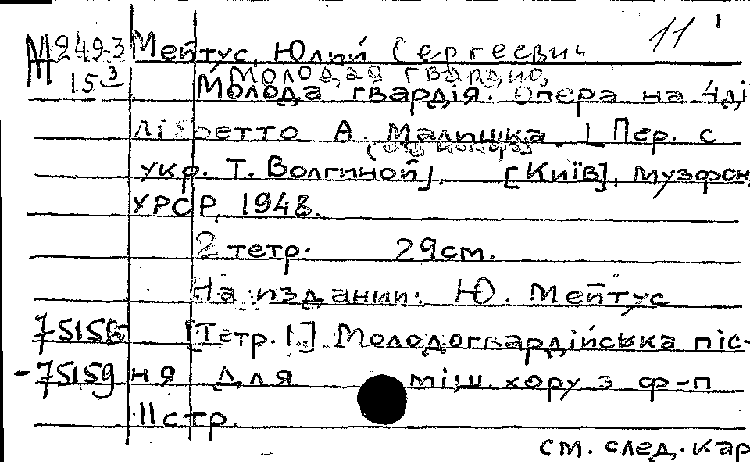 11 1
М 249-3 Мейтус, Юлий Сергеевич
15 3 Молодая гвардия,
Молода гвардія. Опера на 4 ді
Лібретто А. Малишка. | Пер. с
укр. Т. Волгиной]. [Київ], музфон
УРСР, 1948.
2 тетр. 29 см.
На издании: Ю. Мейтус
75158 [Тетр. 1.] Молодогвардійська піс-
-75159 ня для міш. хору з ф-п
11 стр.
см. след. кар